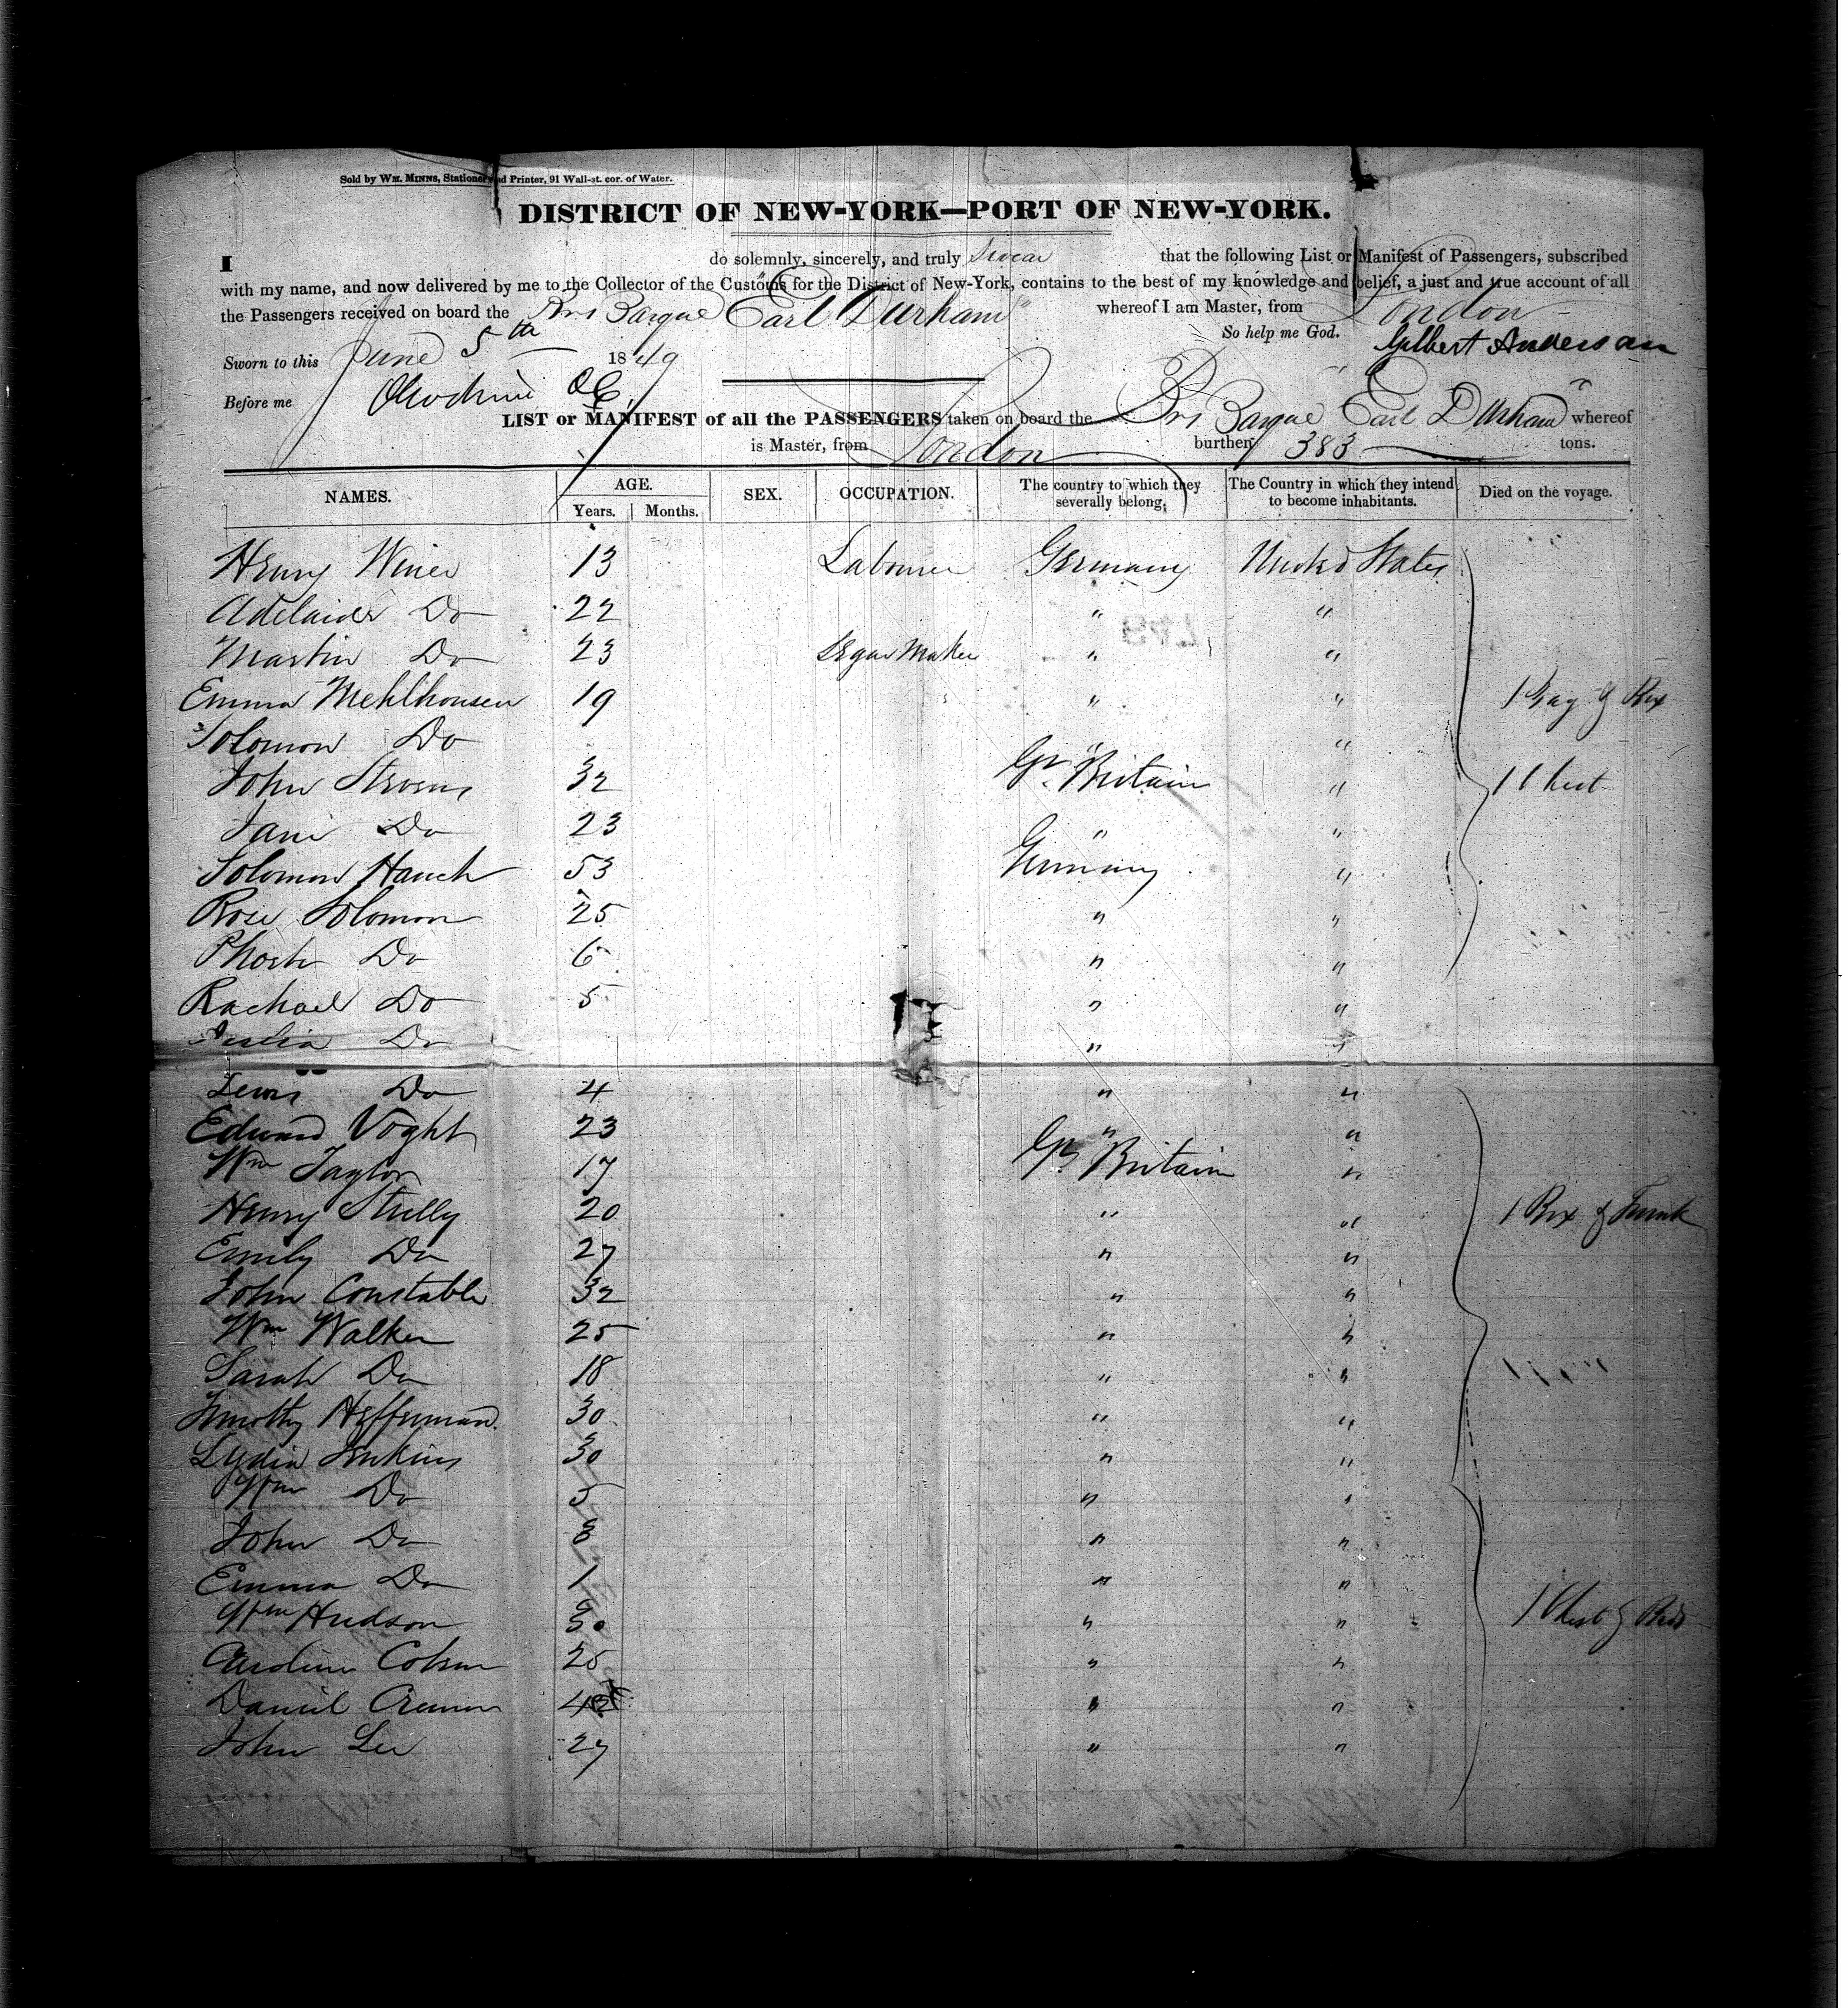 Sold by WM. MINNS, Stationer and Printer, 91 Wall-st. cor. of Water.
DISTRICT OF NEW-YORK—PORT OF NEW-YORK.
I do solemnly, sincerely, and truly swear that the following List or Manifest of Passengers, subscribed
with my name, and now delivered by me to the Collector of the Customs for the District of New-York, contains to the best of my knowledge and belief, a just and true account of all
the Passengers received on board the Bri Barque "Earl Durham" whereof I am Master, from London
So help me God.
Sworn to this June 5th 1849 Gilbert Anderson
Before me
LIST or MANIFEST of all the PASSENGERS taken on board the Bri Barque "Earl Durham" whereof
is Master, from London burthen 383 tons.
NAMES. AGE. SEX. OCCUPATION. The country to which they severally belong. The Country in which they intend to become inhabitants. Died on the voyage.
Years. Months.
Henry Winer 13 Labourer Germany United States
Adelaide Do 22 " "
Martin Do 23 Segar Maker " "
Emma Mehlhousen 19 " " 1 Bag & Box
Solomon Do " "
John Stevens 32 Gt. Britain " 1 Chest
Jane Do 23 " "
Solomon Hauch 53 Germany "
Rose Solomon 25 " "
Phoebe Do 6 " "
Rachael Do 5 " "
Julia Do " "
Lewis Do 4 " "
Edward Voght 23 " "
Wm Taylor 17 Gt. Britain "
Henry Stully 20 " " 1 Box & Trunk
Emily Do 27 " "
John Constable 32 " "
Wm Walker 25 " "
Sarah Do 18 " "
Timothy Hefferman 30 " "
Lydia Jenkins 30 " "
Wm Do 5 " "
John Do 3 " "
Emma Do 1 " "
Wm Hudson 30 " " 1 Chest &
Caroline 25 " "
Daniel " "
John Lee 27 " "